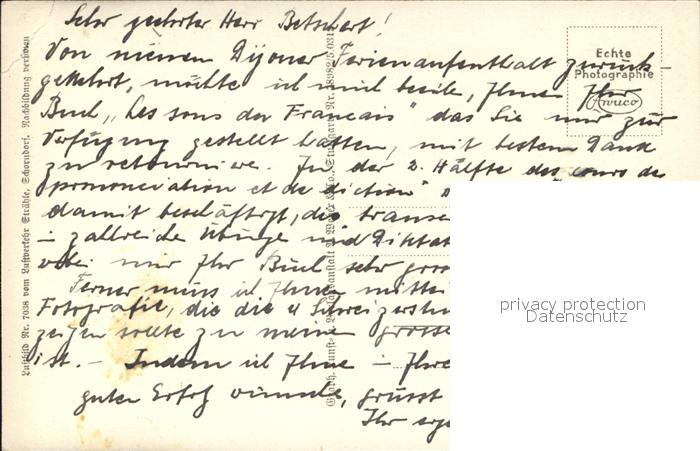 Sehr geehrter Herr Betschert!
Von meinem Dijoner Ferienaufenthalt zurück-
gekehrt, möchte ich mich beeile, Ihnen Ihr
Buch „Les sons du Francais" das Sie mir zur
Verfügung gestellt hatten, mit bestem Dank
zu retourniere. In der 2. Hälfte des „cours de
prononciation et de diction"
damit beschäftigt, die
– zahlreiche Übunge und Diktat
wobei mir Ihr Buch sehr
Ferner muss ich Ihnen mittei
Fotografie, die die 4 Schweizer
zeigen sollte zu meine grosse
ist. – Indem ich Ihne – Ihre
guten Erfolg wünsche, grüsst
Ihr erge
Echte
Photographie
privacy protection
Datenschutz
Luftbild Nr. 7038 vom Luftverkehr Strähle, Schorndorf. Nachbildung verboten
Graph. Kunst- Stuttgart Nr.